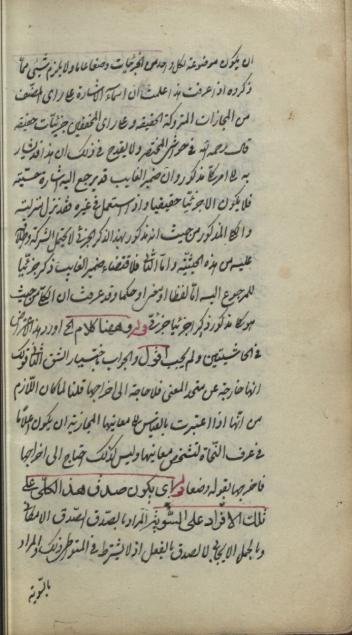 ان يكون موضوعة لكل واحد من الجزئيات وضعا عاما ولا يلزم شئ مما
ذكره اذا عرفت هذا علمت ان اسماء الاشارة على راى المصنف
من المجازات المتروكة الحقيقة وعلى راى المحققين جزئيات حقيقة
قال رحمه الله فى حواشى المختصر ولا يقدح فى ذلك ان هذا قد يشار
به الى امر كلى مذكور وان ضمير الغايب قد يرجع اليه اشارة حسية
فلا يكون الا جزئيا حقيقيا واذا استعمل فى غيره فقد نزل منزلته
والكلى المذكور من حيث انه مذكور بهذا الذكر الجزئى لا يحتمل الشركة
عليه من هذه الحيثية واما الثانى فلاقتضاء ضمير الغايب ذكر جزئيا
للمرجوع اليه اما لفظا او معنى او حكما وقد عرفت ان الكلى من حيث
هو كلى مذكور ذكرا جزئيا جزئى قوله وههنا كلام الخ اورد هذا الاعتراض
فى الحاشيتين ولم يجب اقول والجواب باختيار الشق الثانى قولك
انها خارجة عن متحد المعنى فلا حاجة الى اخراجها قلنا لما كان اللازم
من انها اذا اعتبرت بالقياس الى معانيها المجازية ان يكون اعلاما
فى عرف النحاة لتشخص معانيها وليس كذلك احتاج الى اخراجها
فاخرجها بقوله وضعا قوله اى يكون صدق هذا الكلى على
تلك الافراد على السوية المراد بالصدق الصدق الامكانى
والحمل الايجابى لا الصدق بالفعل اذ لا يشترط فى المتواطئ ذلك والمراد
بالسوية